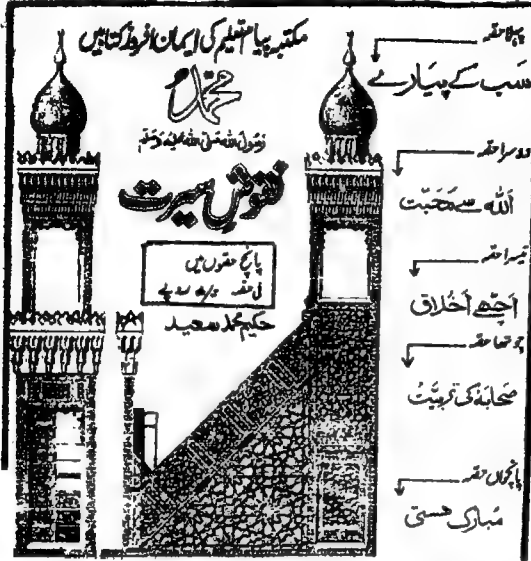 مکتبہ پیام تعلیم کی ایمان افروز کتابیں
محمد
رَسُولُ اللہ صَلَّی اللہ عَلَیْہِ وَسَلَّم
نقوشِ سیرت
پانچ حصّوں میں
فی حصّہ روپے
حکیم محمد سعید
پہلا حصّہ
سَب کے پیارے
دوسرا حصّہ
اَللہ سے مَحَبَّت
تیسرا حصّہ
اَچّھے اَخْلاق
چوتھا حصّہ
صَحابَہ کی تربیَّت
پانچواں حصّہ
مُبارک ہستی